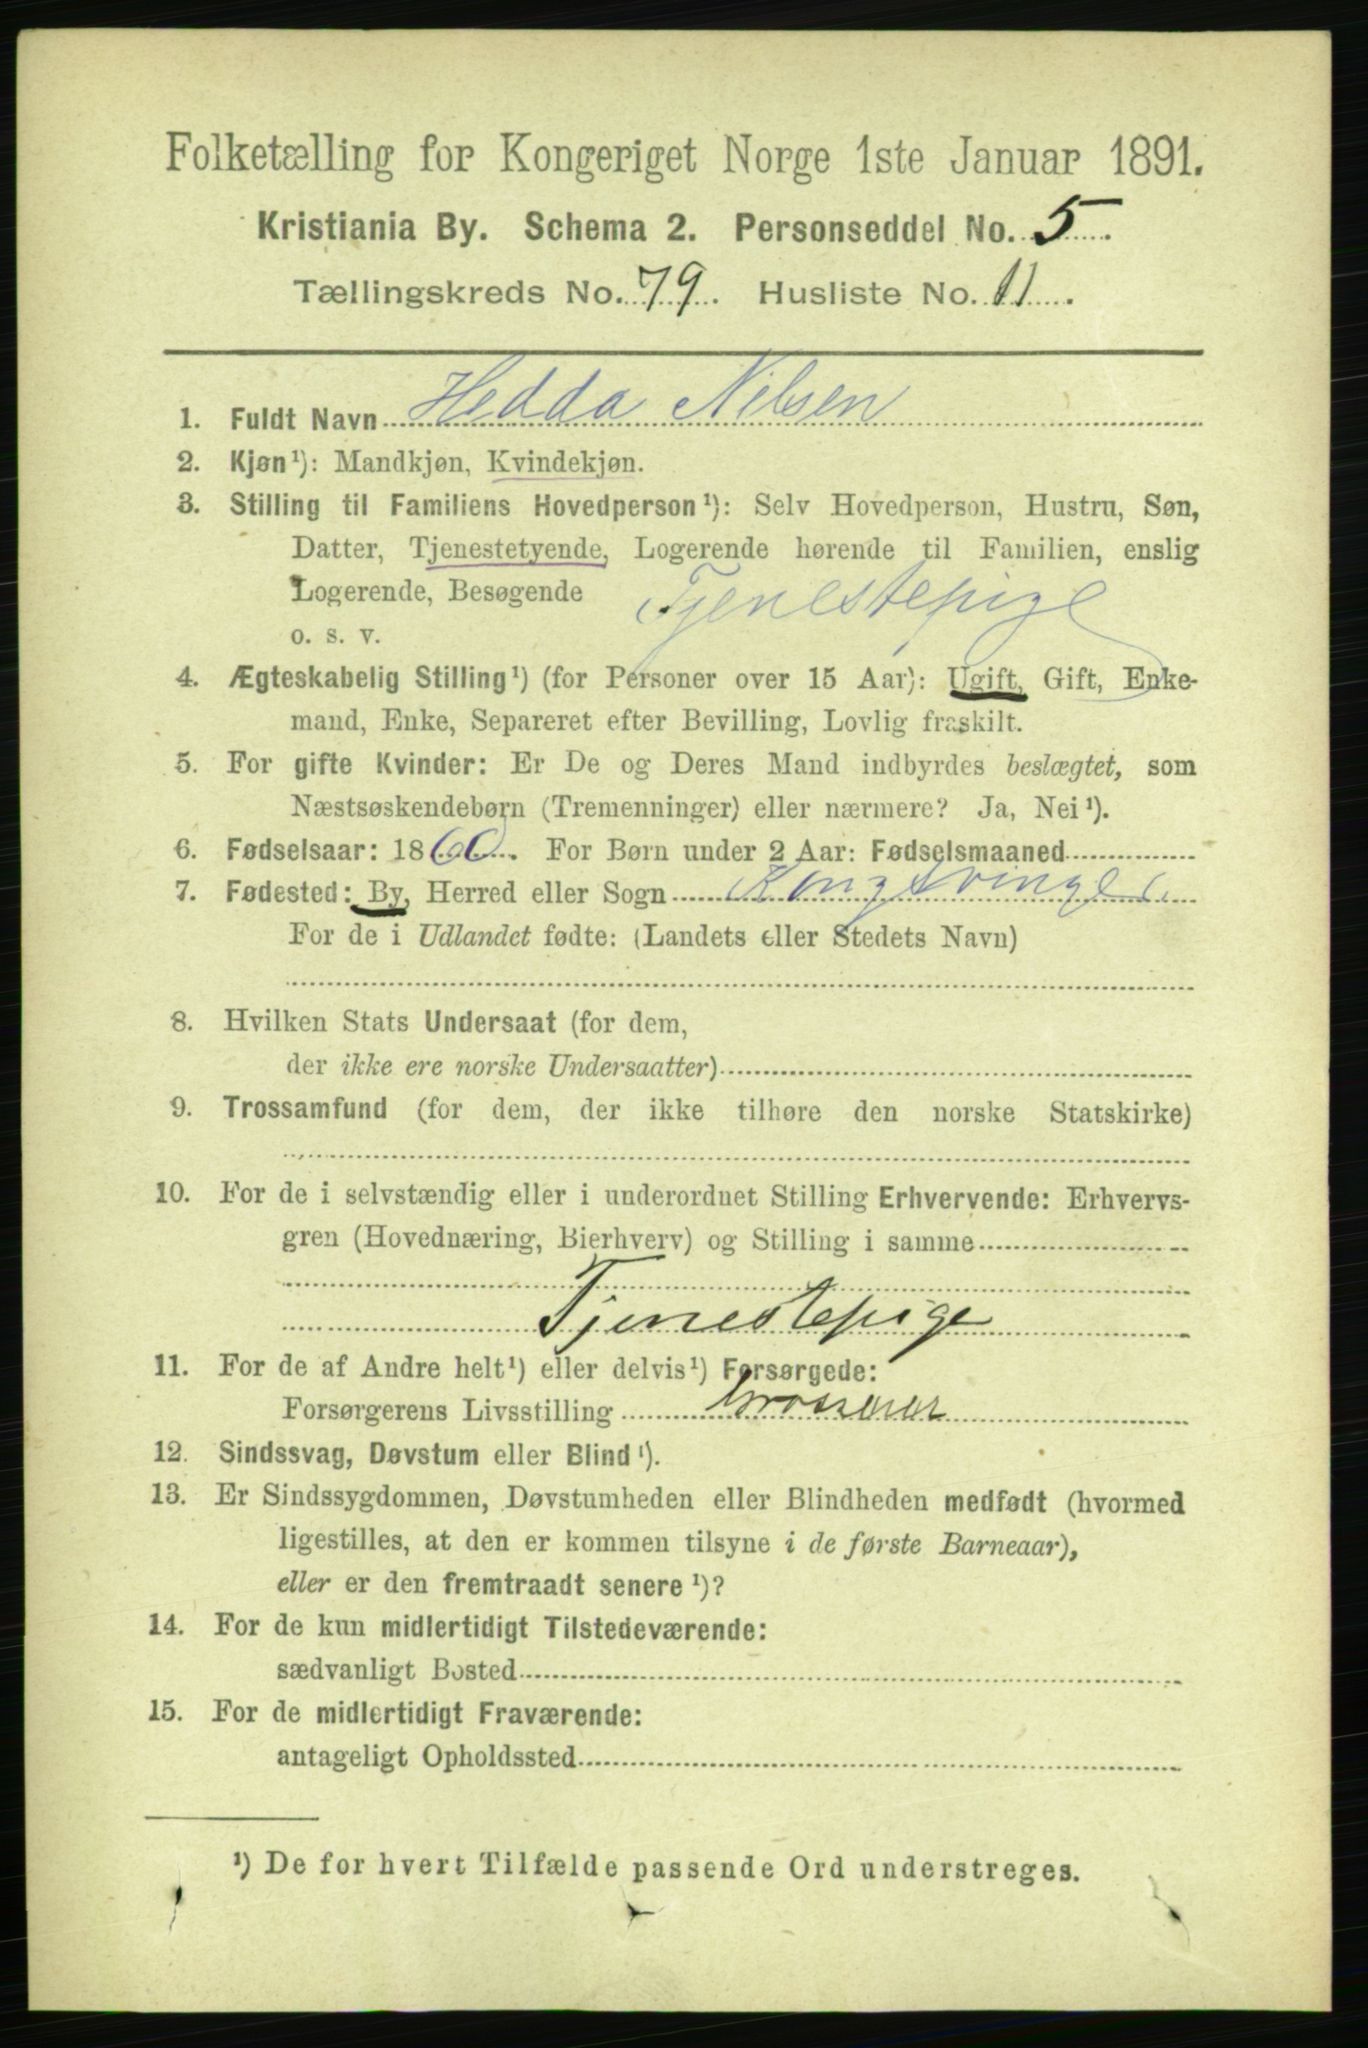 Folketælling for Kongeriget Norge 1ste Januar 1891.
Kristiania By. Schema 2. Personseddel No. 5.
Tællingskreds No. 79. Husliste No. 11.
1. Fuldt Navn Hedda Nilsen
2. Kjøn¹): Mandkjøn, Kvindekjøn.
3. Stilling til Familiens Hovedperson¹): Selv Hovedperson, Hustru, Søn,
Datter, Tjenestetyende, Logerende hørende til Familien, enslig
Logerende, Besøgende Tjenestepige
o. s. v.
4. Ægteskabelig Stilling¹) (for Personer over 15 Aar): Ugift, Gift, Enke-
mand, Enke, Separeret efter Bevilling, Lovlig fraskilt.
5. For gifte Kvinder: Er De og Deres Mand indbyrdes beslægtet, som
Næstsøskendebørn (Tremenninger) eller nærmere? Ja, Nei¹).
6. Fødselsaar: 1860. For Børn under 2 Aar: Fødselsmaaned
7. Fødested: By, Herred eller Sogn Kongsvinger
For de i Udlandet fødte: (Landets eller Stedets Navn)
8. Hvilken Stats Undersaat (for dem,
der ikke ere norske Undersaatter)
9. Trossamfund (for dem, der ikke tilhøre den norske Statskirke)
10. For de i selvstændig eller i underordnet Stilling Erhvervende: Erhvervs-
gren (Hovednæring, Bierhverv) og Stilling i samme
Tjenestepige
11. For de af Andre helt¹) eller delvis¹) Forsørgede:
Forsørgerens Livsstilling
12. Sindssvag, Døvstum eller Blind¹).
13. Er Sindssygdommen, Døvstumheden eller Blindheden medfødt (hvormed
ligestilles, at den er kommen tilsyne i de første Barneaar),
eller er den fremtraadt senere¹)?
14. For de kun midlertidigt Tilstedeværende:
sædvanligt Bosted
15. For de midlertidigt Fraværende:
antageligt Opholdssted
¹) De for hvert Tilfælde passende Ord understreges.